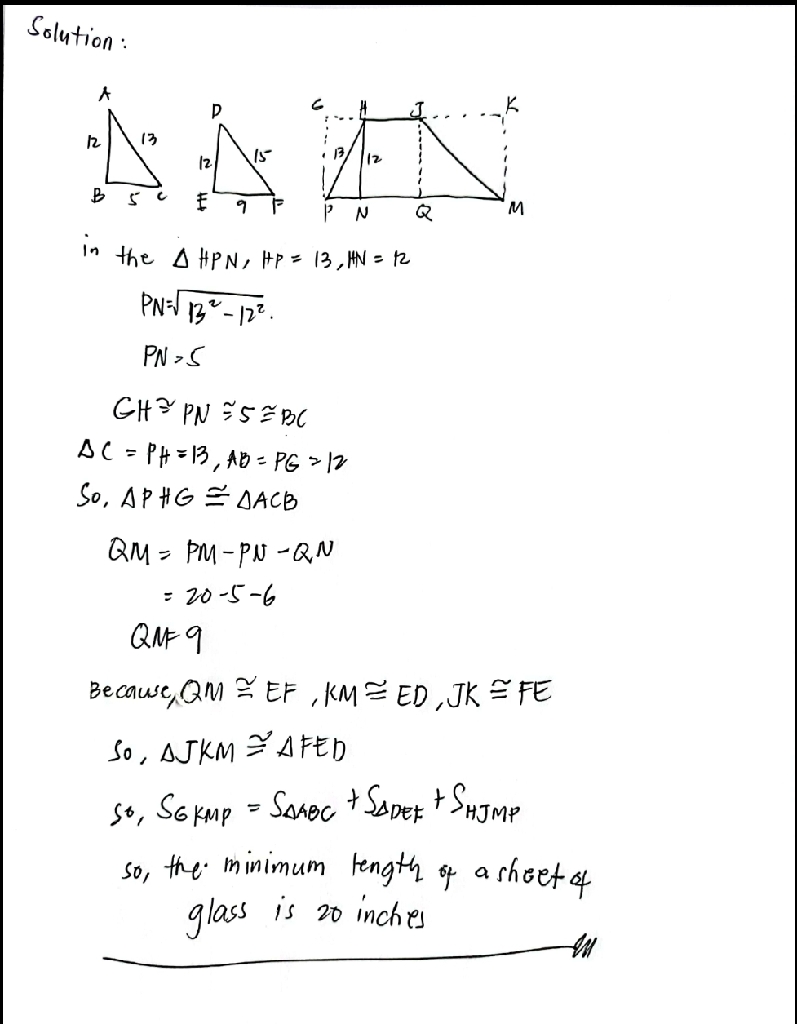 Solution :
A
12 13
B 5 C
D
12 15
E 9 F
G H J K
13 12
P N Q M
in the Δ HPN, HP = 13, HN = 12
PN=√13² - 12².
PN = 5
GH ≅ PN ≅ 5 ≅ BC
ΔC = PH = 13, AB = PG = 12
So, ΔPHG ≅ ΔACB
QM = PM - PN - QN
= 20 - 5 - 6
QM= 9
Because, QM ≅ EF , KM ≅ ED , JK ≅ FE
So , ΔJKM ≅ ΔFED
So, SGKMP = SΔABC + SΔDEF + SHJMP
so, the minimum length of a sheet of
glass is 20 inches